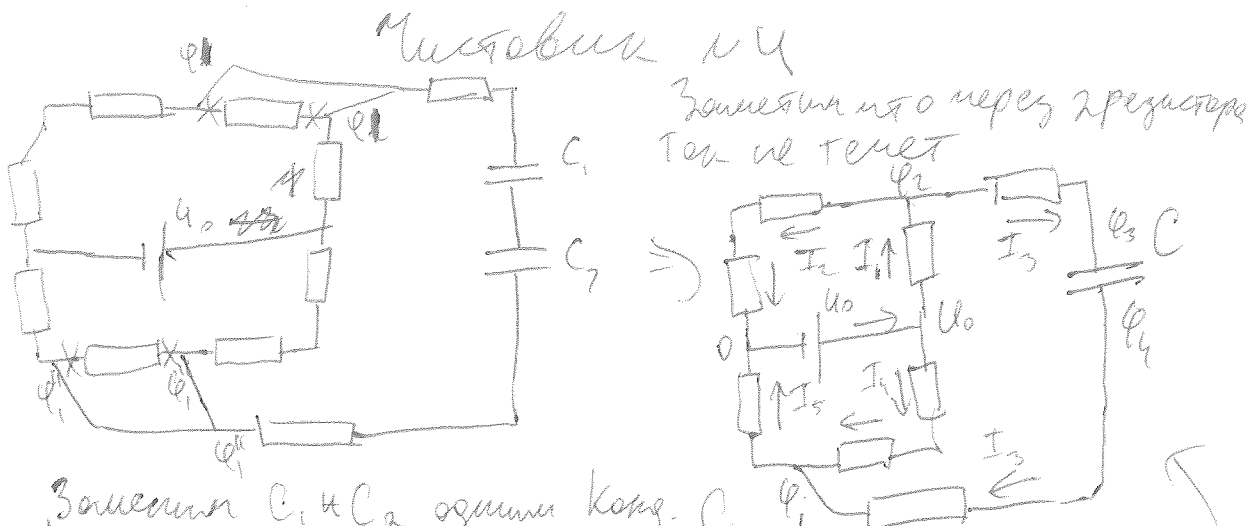 Чистовик №4
φ1
φ1
Заметим что через 2 резистора
ток не течет
U₀
C₁
C₂
φ₂
I₂
I₁
I₃
φ₃
C
φ₄
0
U₀
U₀
I₅
I₄
I₃
φ₁"
φ₁"
φ₁"
φ₁
Заменим C₁ и C₂ одним конд. C